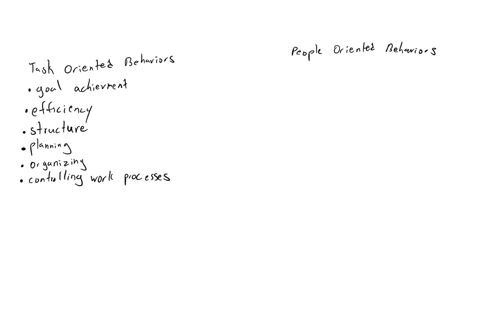 Task Oriented Behaviors
• goal achievment
• efficiency
• structure
• planning
• organizing
• controlling work processes
People Oriented Behaviors